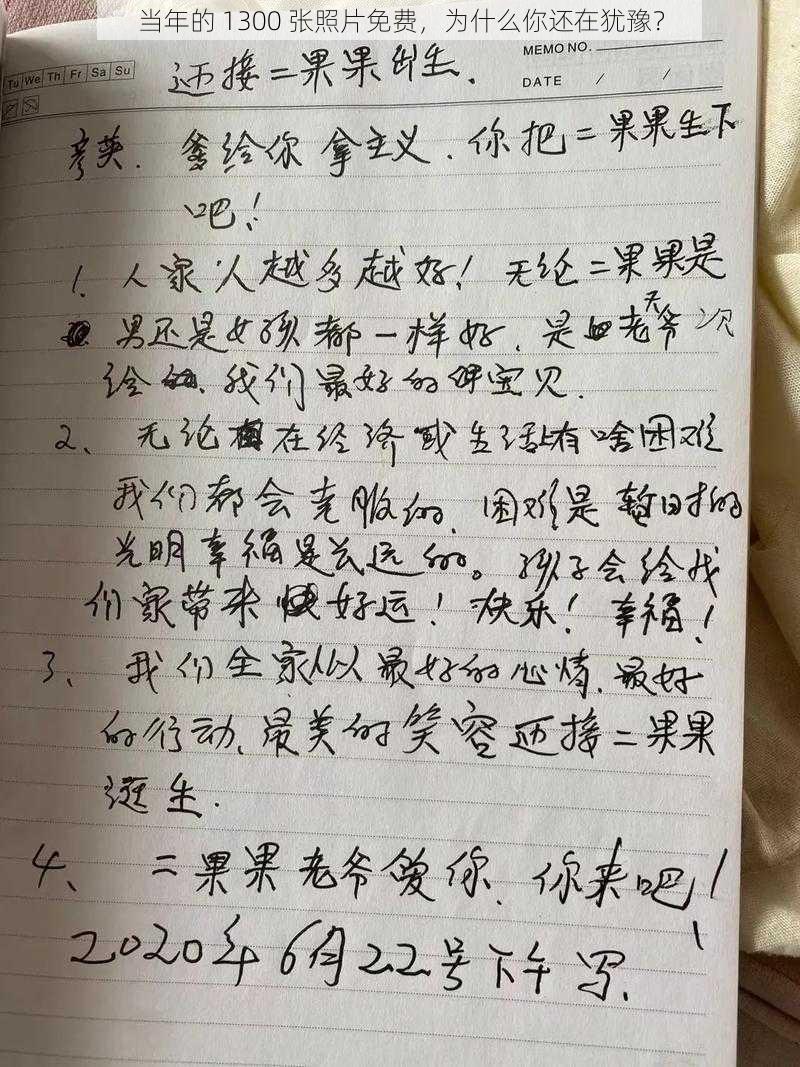 当年的 1300 张照片免费，为什么你还在犹豫？
Tu We Th Fr Sa Su
MEMO NO.
DATE / /
迎接二果果出生.
彦英. 爹给你拿主义. 你把二果果生下
吧!
1. 人家人越多越好! 无论二果果是
男还是女孩都一样好. 是老天爷
给的. 我们最好的宝贝.
2、无论在经济或生活上有啥困难
我们都会克服的. 困难是暂时的
光明幸福是长远的。孩子会给我
们家带来好运! 快乐! 幸福!
3、我们全家人以最好的心情. 最好
的行动、最美的笑容迎接二果果
诞生.
4、二果果老爷爱你. 你来吧!
2020年6月22号下午写.